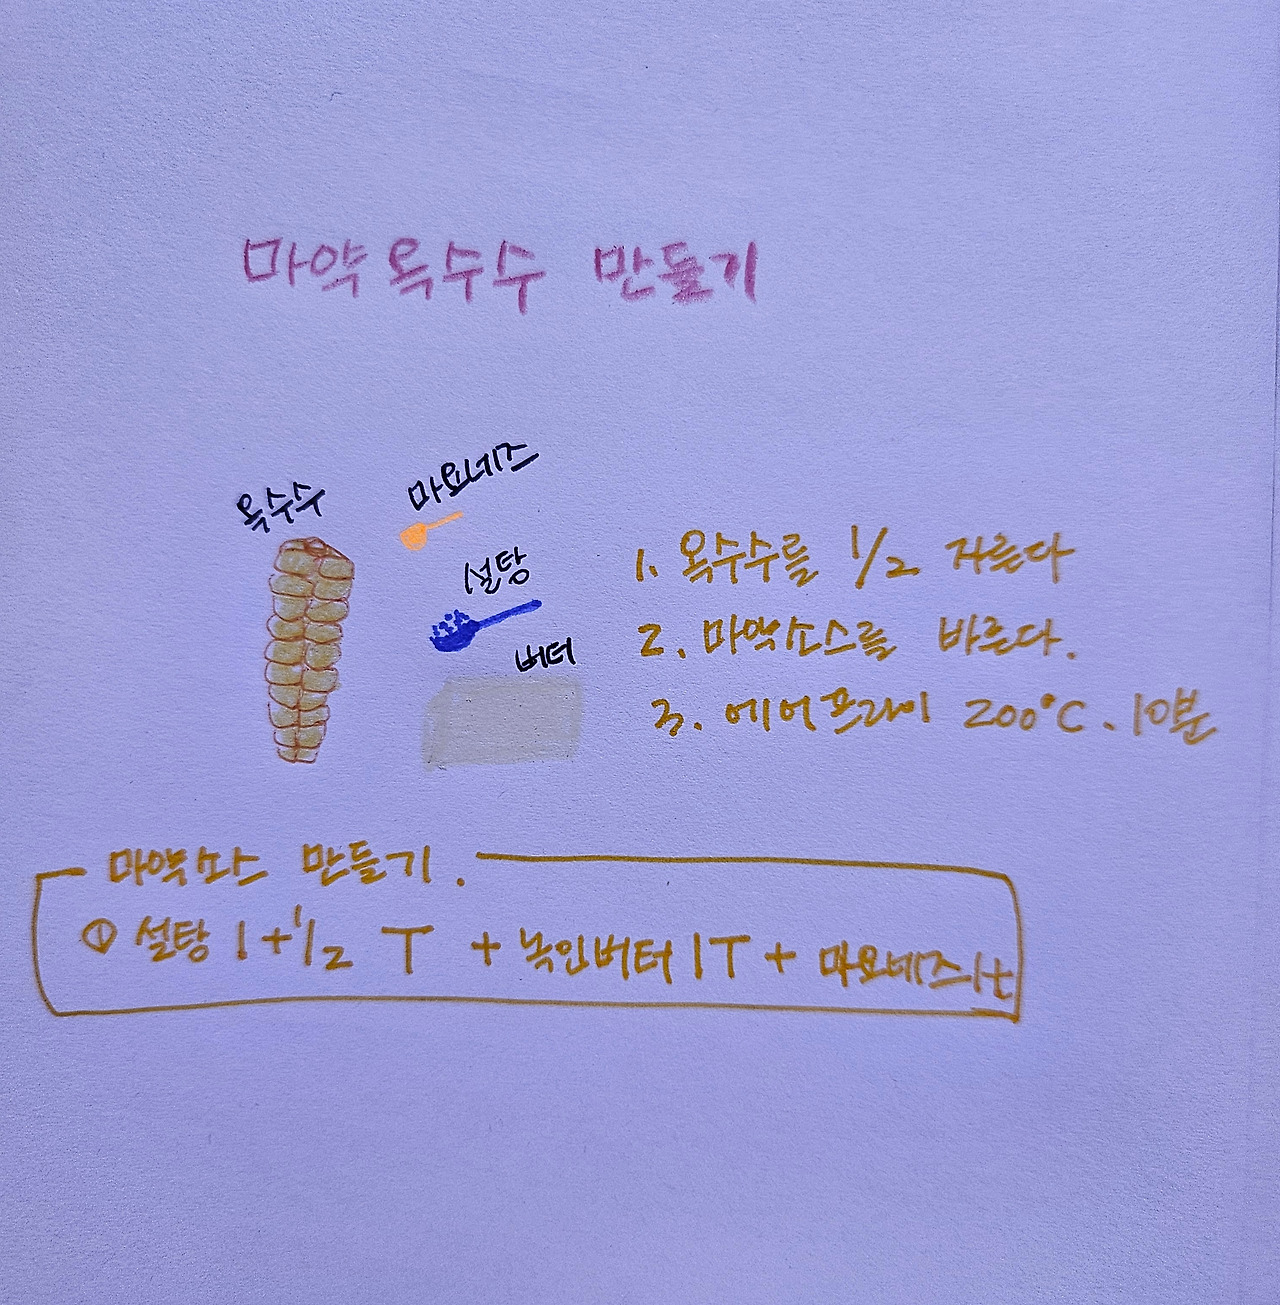 마약옥수수 만들기
옥수수
마요네즈
설탕
버터
1. 옥수수를 1/2 자른다
2. 마약소스를 바른다.
3. 에어프라이 200°C. 10분
마약소스 만들기.
① 설탕 1+1/2 T + 녹인버터 1T + 마요네즈 1t